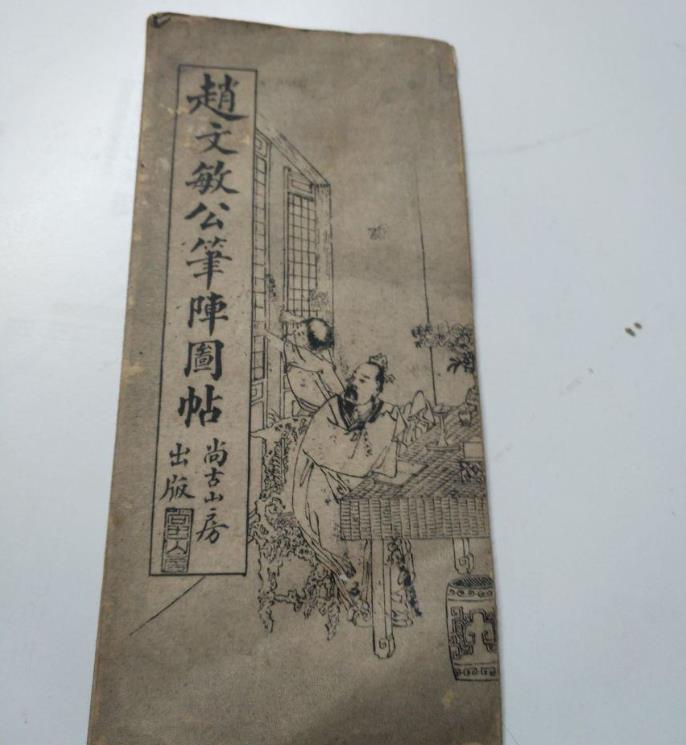 趙文敏公筆陣圖帖
尚古山房
出版